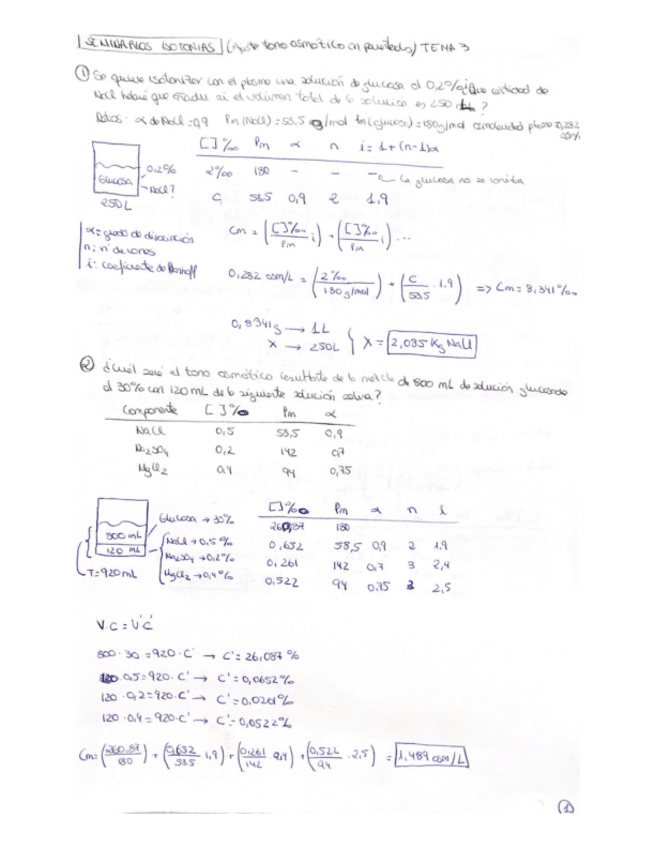 SEMINARIOS ISOTONIAS (Ajuste tono osmótico en parenterales) TEMA 3
① Se quiere isotonizar con el plasma una solución de glucosa al 0,2% ¿Que cantidad de
NaCl habrá que añadir si el volumen total de la solución es 250 L?
Datos: α de NaCl = 0,9 Pm (NaCl) = 58,5 g/mol Pm (glucosa) = 180 g/mol osmolaridad plasma = 0,282 osm/L
[ ]‰ Pm α n i = 1 + (n-1)α
Glucosa 0,2% NaCl?
250L
2‰ 180 - - - ← La glucosa no se ioniza
C 58,5 0,9 2 1,9
α = grado de disociación
n: nº de iones
i: coeficiente de Van hoff
Cm = ([ ]‰ / Pm i) + ([ ]‰ / Pm i) ...
0,282 osm/L = (2‰ / 180 g/mol) + (C / 58,5 · 1,9) ⇒ Cm = 8,341‰
0,8341g → 1L
X → 250L } X = 2,085 Kg NaCl
② ¿Cuál será el tono osmótico resultante de la mezcla de 800 mL de solución glucosada
al 30% con 120 mL de la siguiente solución salina?
Componente [ ]% Pm α
NaCl 0,5 58,5 0,9
Na2SO4 0,2 142 0,7
MgCl2 0,4 94 0,75
800 mL Glucosa → 30%
120 mL NaCl → 0,5%
Na2SO4 → 0,2%
MgCl2 → 0,4%
T = 920 mL
[ ]‰ Pm α n i
260,87 180
0,652 58,5 0,9 2 1,9
0,261 142 0,7 3 2,4
0,522 94 0,75 3 2,5
V·C = V'C'
800 · 30 = 920 · C' → C' = 26,087 %
120 · 0,5 = 920 · C' → C' = 0,0652 %
120 · 0,2 = 920 · C' → C' = 0,0261 %
120 · 0,4 = 920 · C' → C' = 0,0522 %
Cm = (260,87 / 180) + (0,652 / 58,5 · 1,9) + (0,261 / 142 · 2,4) + (0,522 / 94 · 2,5) = 1,489 osm/L
①